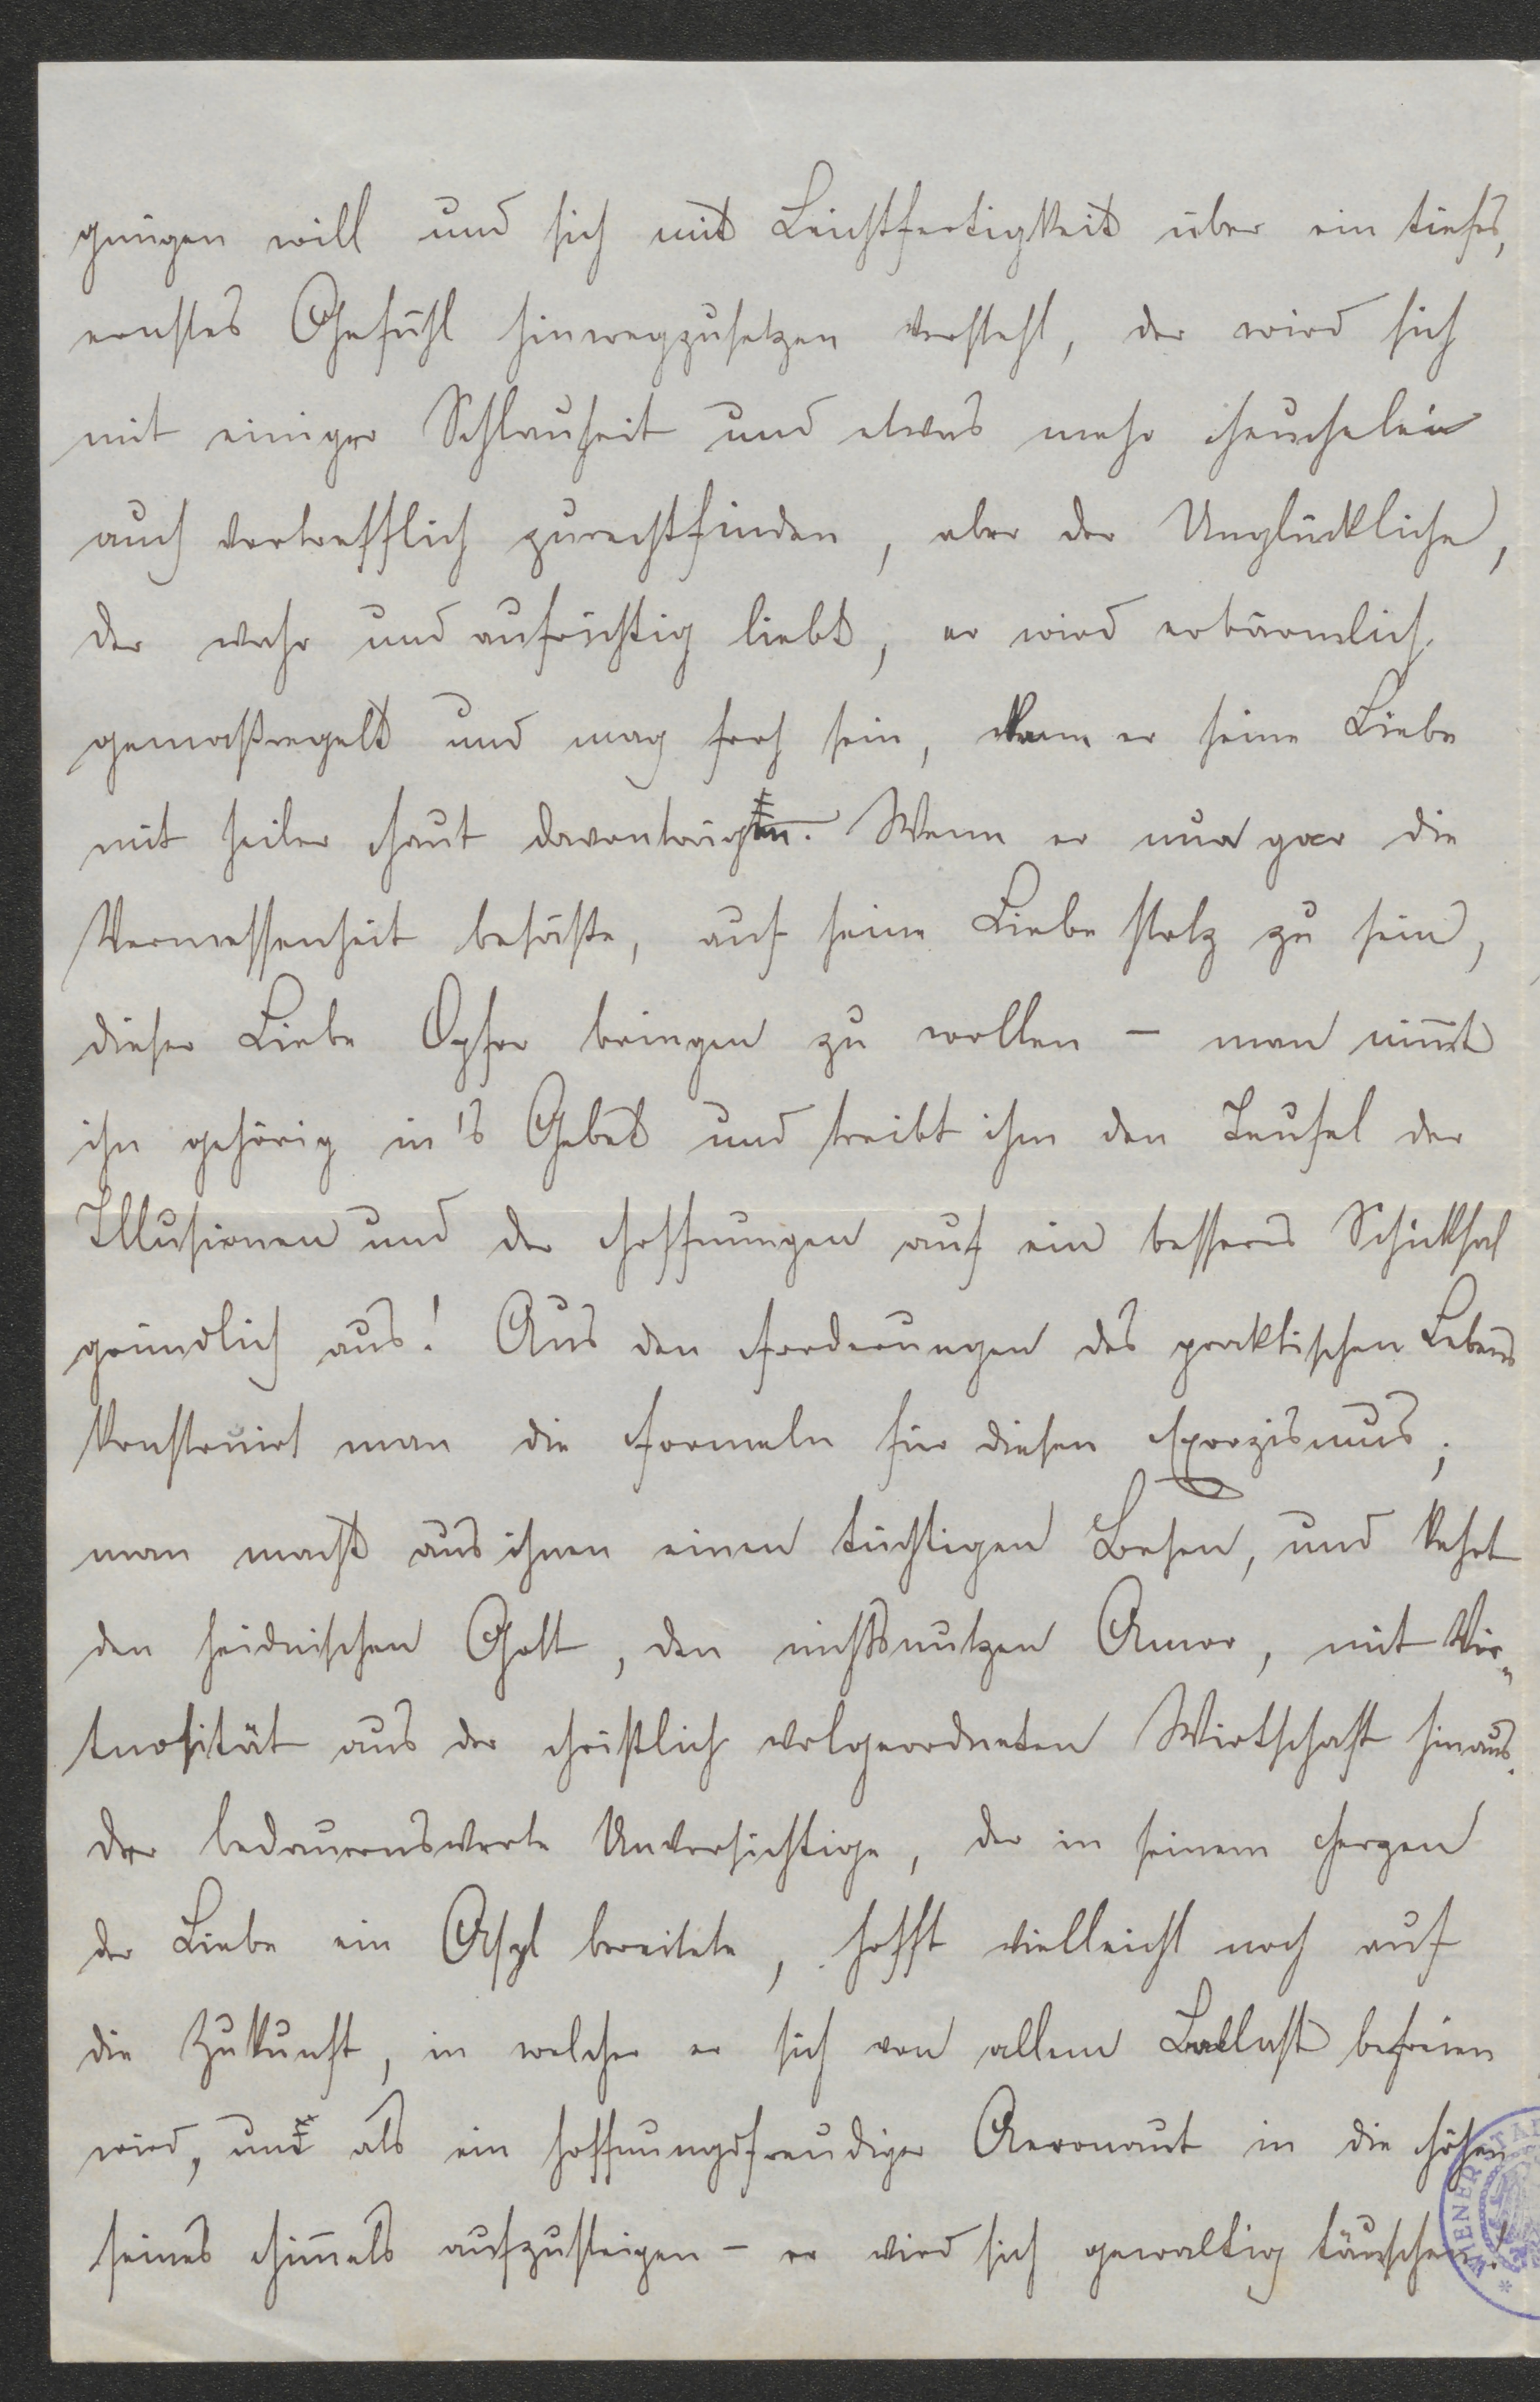 gnügen will und sich mit Leichtfertigkeit über ein tiefes,
ernstes Gefühl hinwegzusetzen versteht, der wird sich
mit einiger Schlauheit und etwas mehr Heuchelei
auch vortrefflich zurechtfinden, aber der Unglückliche,
der wahr und aufrichtig liebt, er wird erbärmlich
gemaßregelt und mag froh sein, kann er seine Liebe
mit heiler Haut davontragen. Wenn er nun gar die
Vermessenheit besäße, auf seine Liebe stolz zu sein,
dieser Liebe Opfer bringen zu wollen – man nim̄t
ihn gehörig in's Gebet und treibt ihm den Teufel der
Illusionen und der Hoffnungen auf ein besseres Schicksal
gründlich aus! Aus den Forderungen des praktischen Lebens
konstruirt man die Formeln für diesen Exorzismus;
man macht aus ihnen einen tüchtigen Besen, und kehrt
den heidnischen Gott, den nichtsnutzen Amor, mit Vir-
tuosität aus der christlich wolgeordneten Wirtschaft hinaus.
Der bedauernswerte Unvorsichtige, der in seinem Herzen
der Liebe ein Asyl bereitete, hofft vielleicht noch auf
die Zukunft, in welcher er sich von allem Ballast befreien
wird, und als ein hoffnungsfreudiger Aeronaut in die Höhen
seines Him̄els aufzusteigen – er wird sich gewaltig täuschen!
WIENER STA